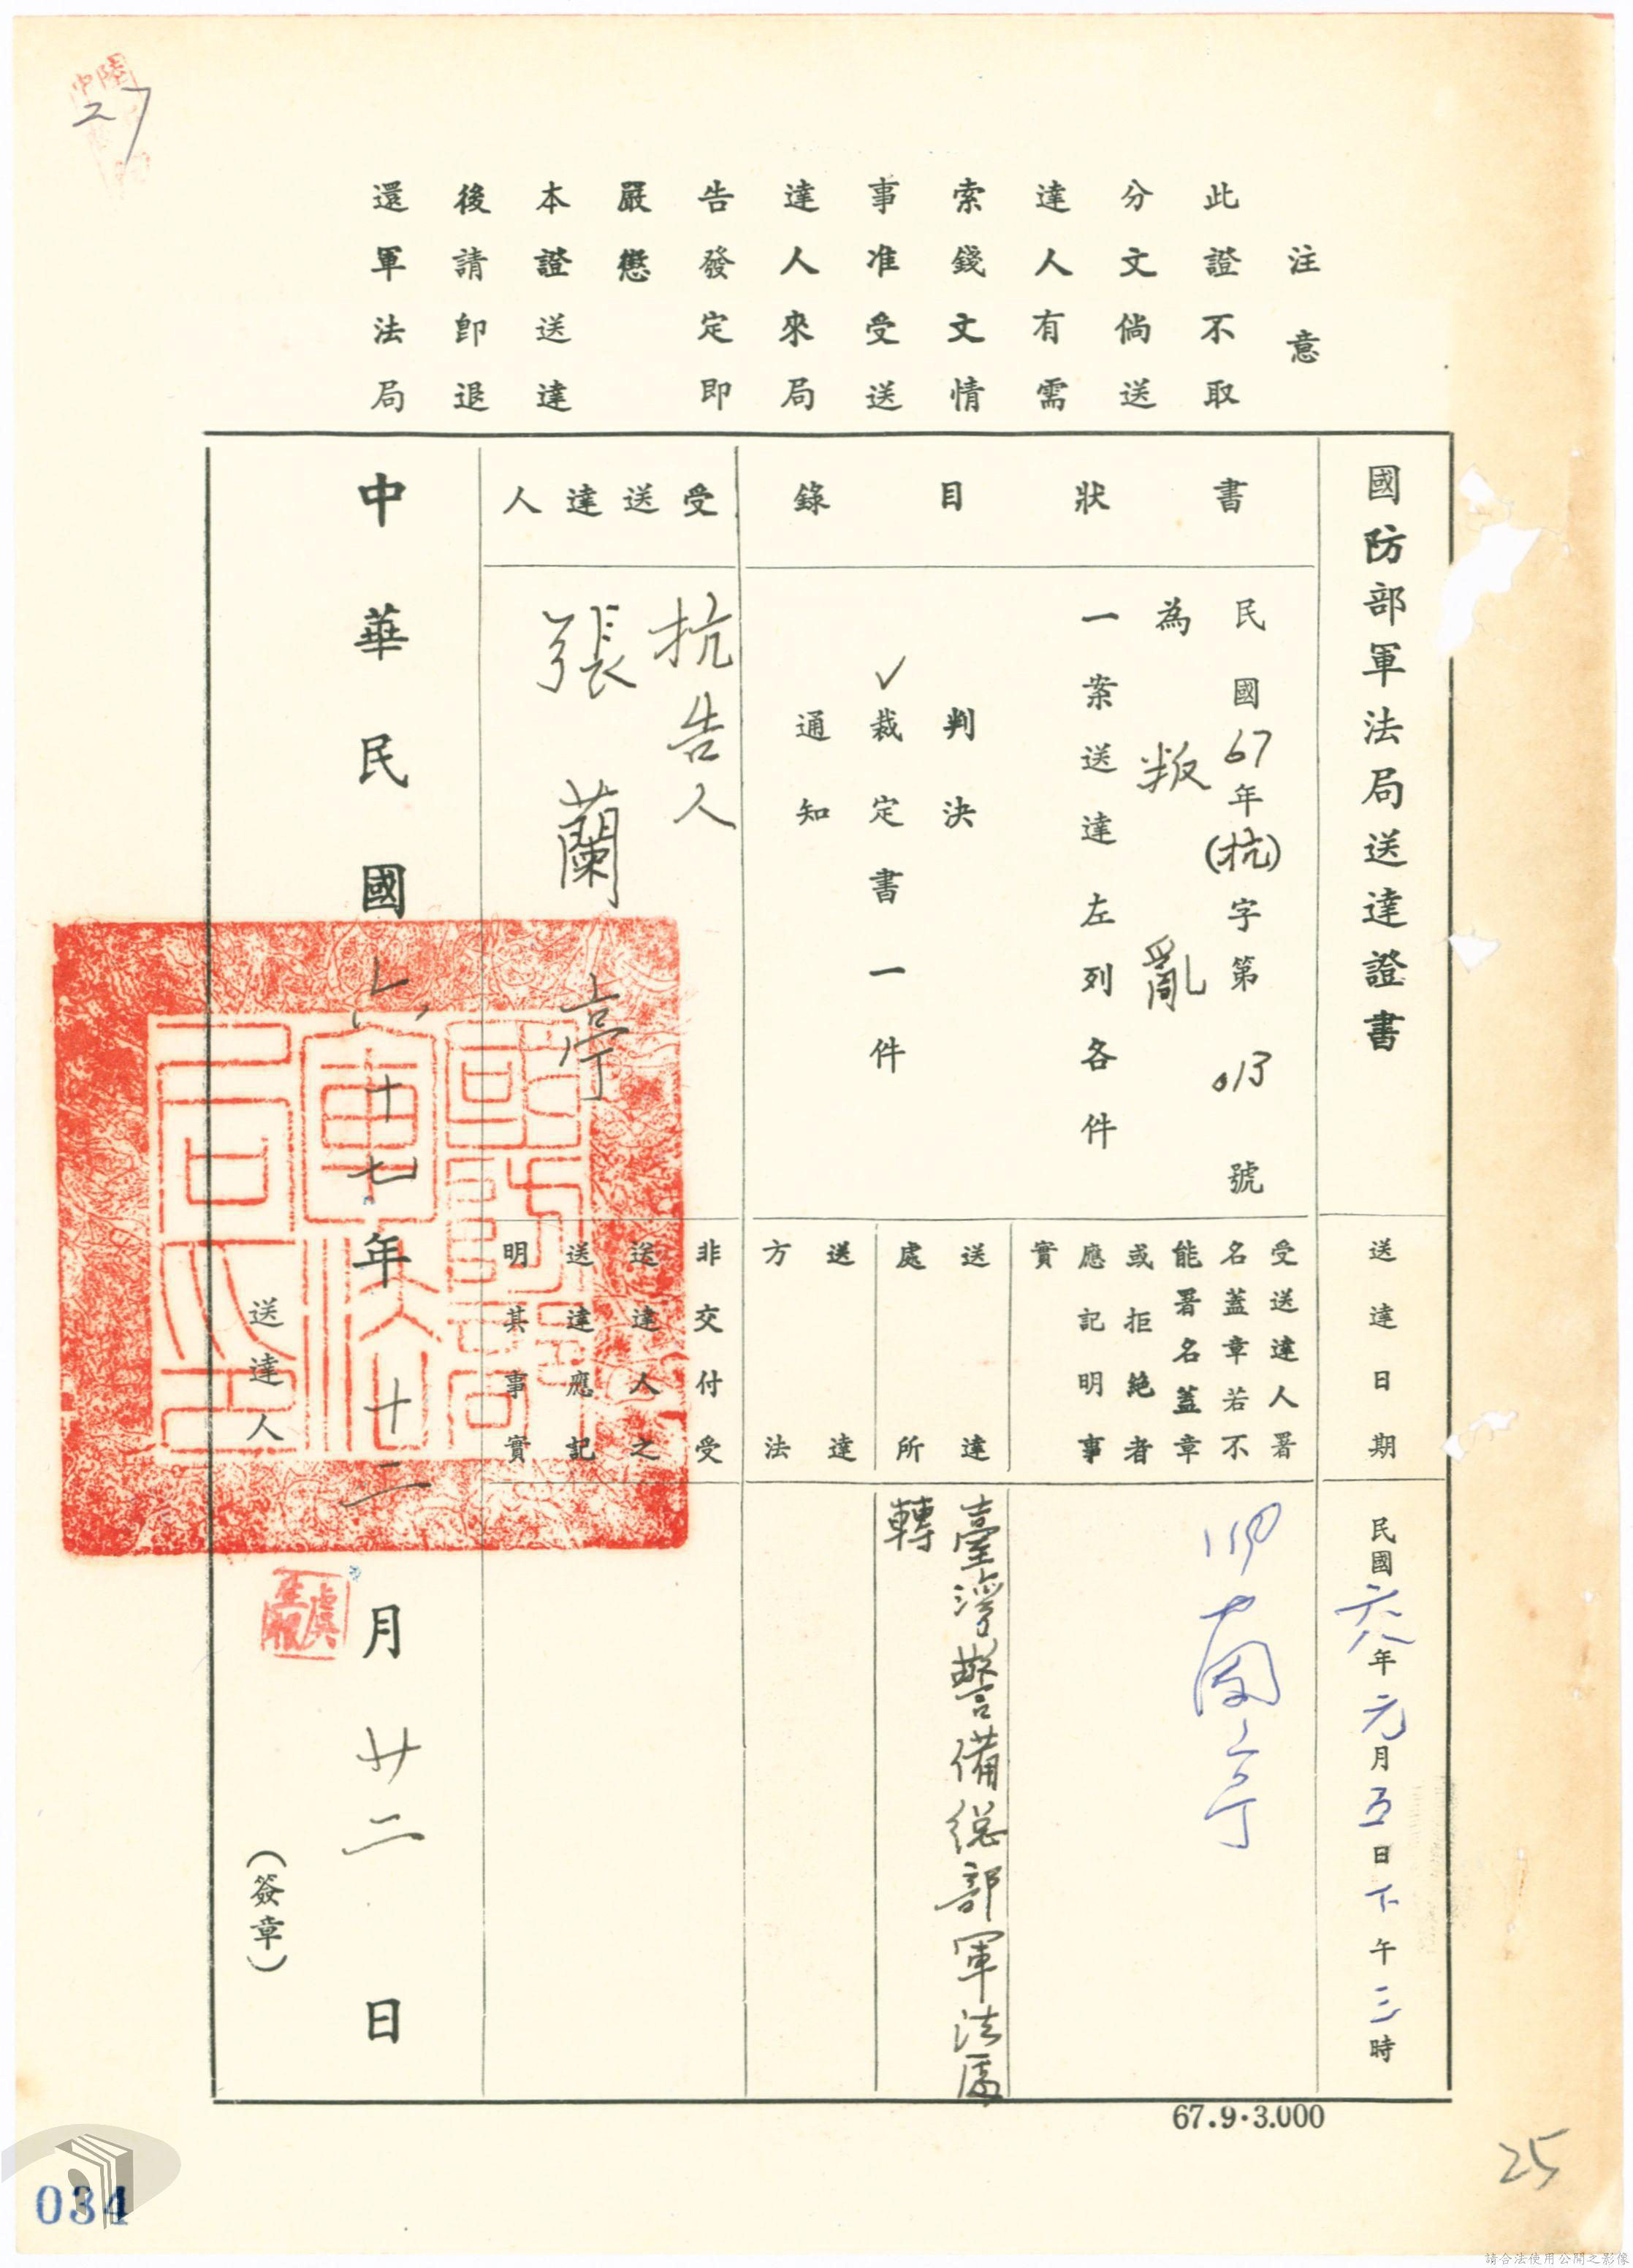 27
注意
此證不取
分文倘送
達人有需
索錢文情
事准受送
達人來局
告發定即
嚴懲
本證送達
後請卽退
還軍法局
國防部軍法局送達證書
送達日期
民國六八年元月五日下午三時
書狀目錄
民國67年(抗)字第013號
為叛亂
一案送達左列各件
判決
✓裁定書一件
通知
受送達人署
名蓋章若不
能署名蓋章
或拒絶者
應記明事
實
張蘭亭
送達
處所
臺灣警備總部軍法處
轉
送達
方法
受送達人
抗告人
張蘭亭
非交付受
送達人之
送達應記
明其事實
中華民國六十七年十二月廿二日
送達人
(簽章)
國防部軍法局印
67.9·3.000
25
034
請合法使用公開之影像